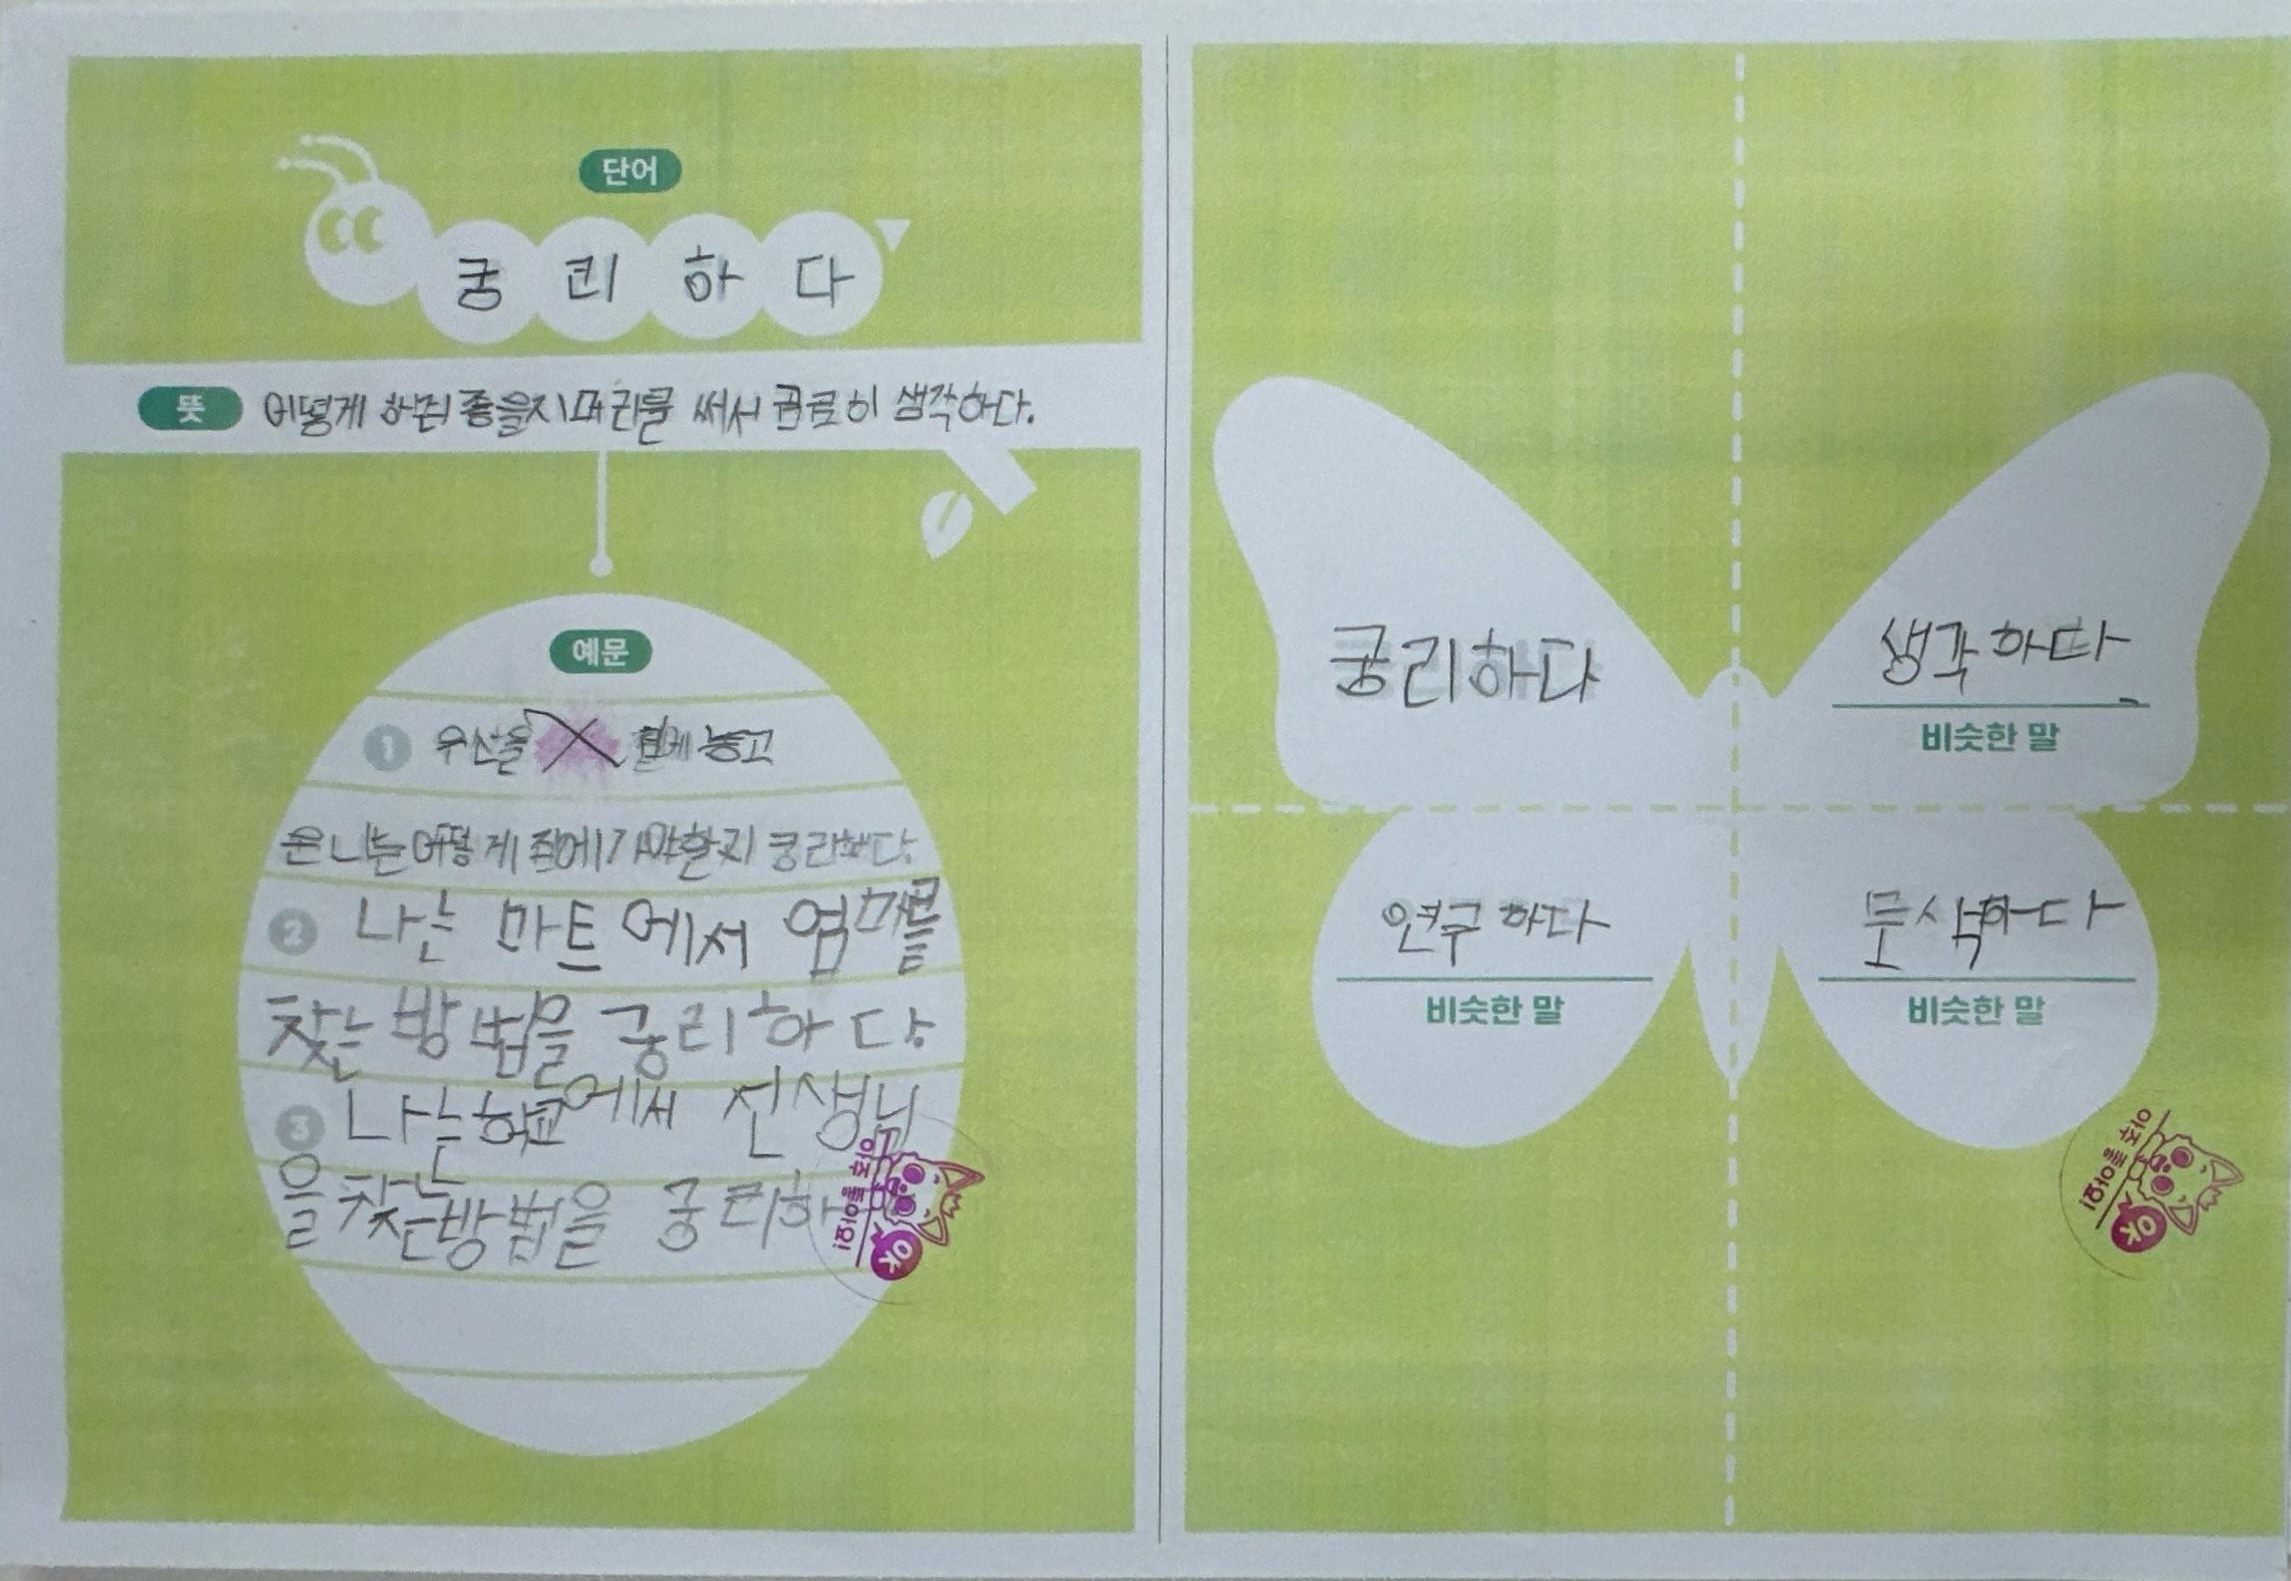 단어
궁리하다
뜻 어떻게 하면 좋을지 머리를 써서 곰곰히 생각하다.
예문
1 우산을 집에 놓고
온 나는 어떻게 집에 가야할지 궁리했다.
2 나는 마트에서 엄마를
찾는 방법을 궁리하다.
3 나는 학교에서 선생님
을 찾는 방법을 궁리하
아주 훌륭해! OK
궁리하다
생각하다
비슷한 말
연구하다
비슷한 말
모색하다
비슷한 말
OK